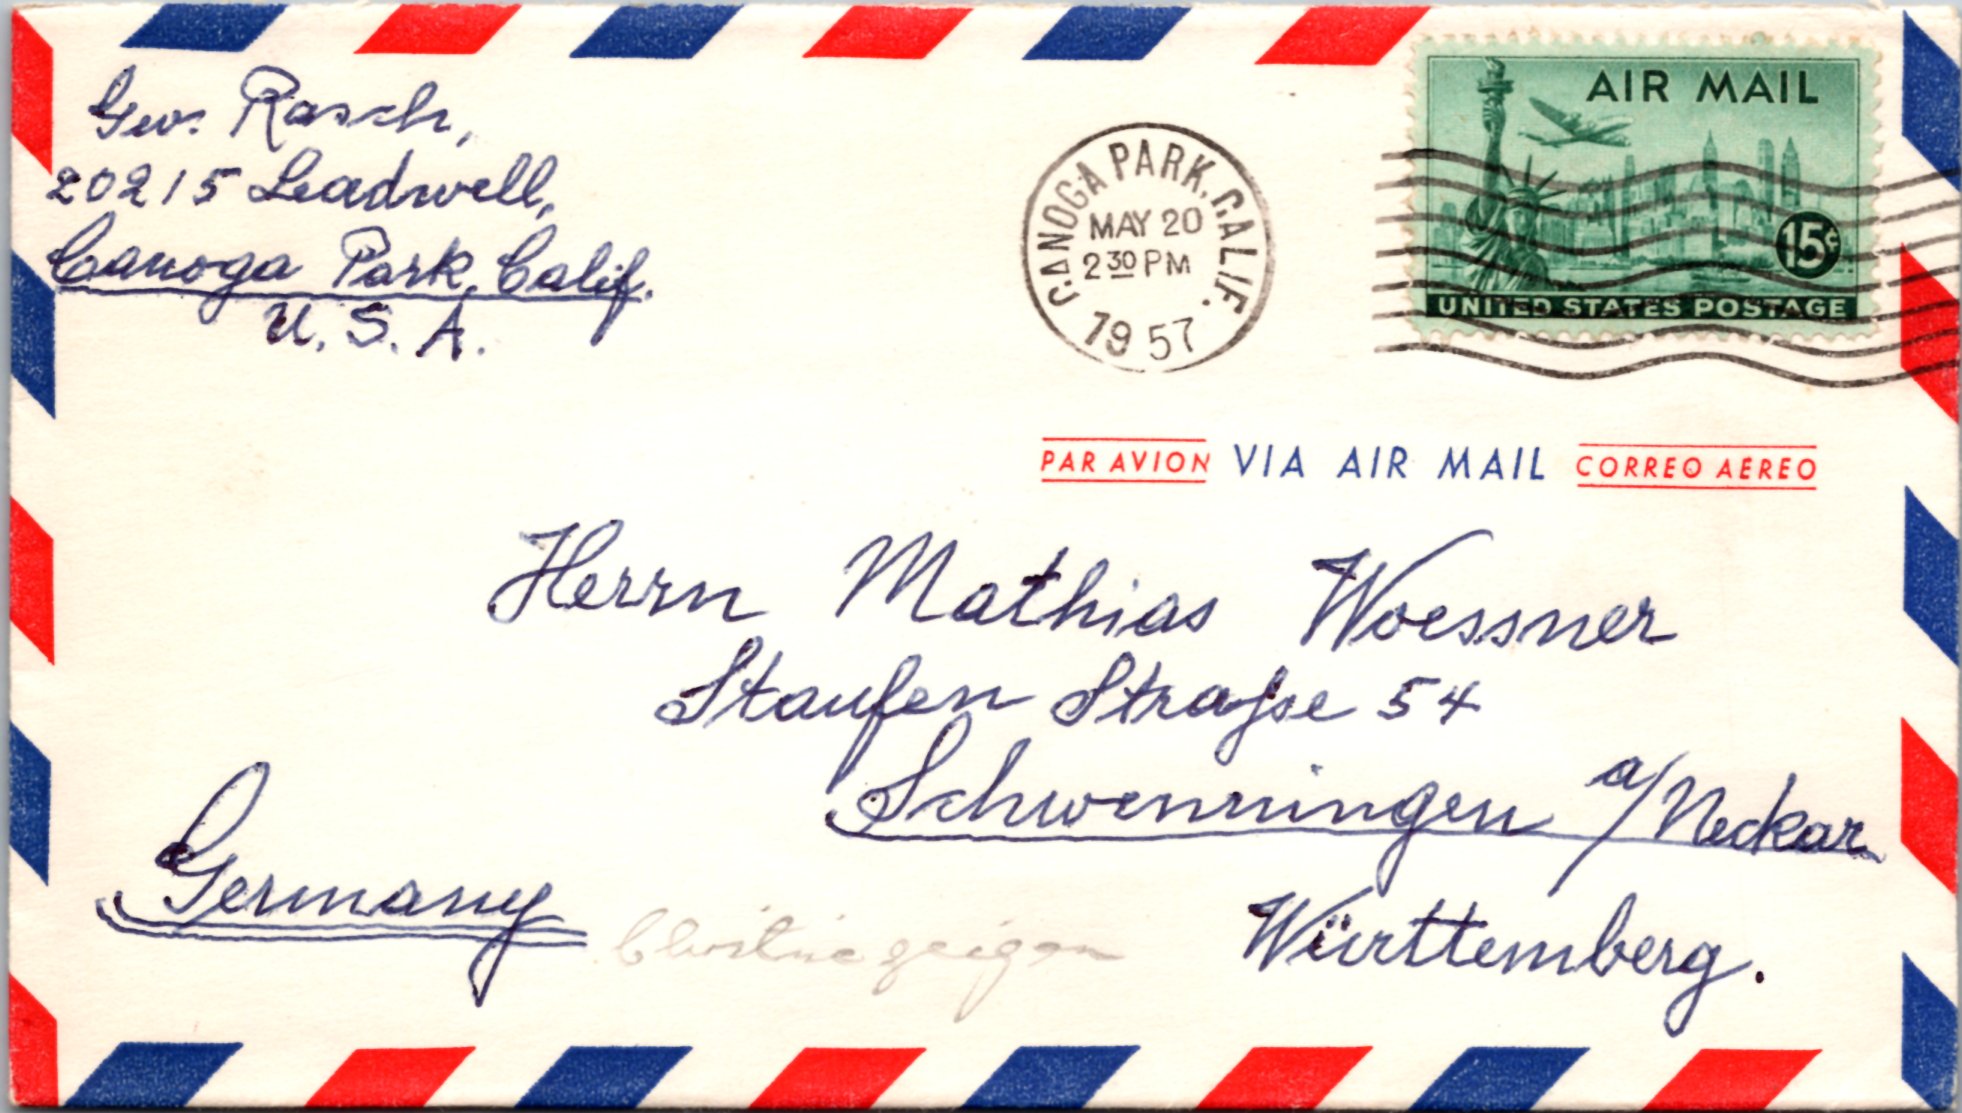 Geo. Rasch,
20215 Leadwell,
Canoga Park, Calif.
U. S. A.
CANOGA PARK, CALIF.
MAY 20
2 30 PM
1957
AIR MAIL
15¢
UNITED STATES POSTAGE
PAR AVION VIA AIR MAIL CORREO AEREO
Herrn Mathias Woessner
Staufen Straße 54
Schwenningen a/Neckar
Württemberg.
Germany
Christine zeigen